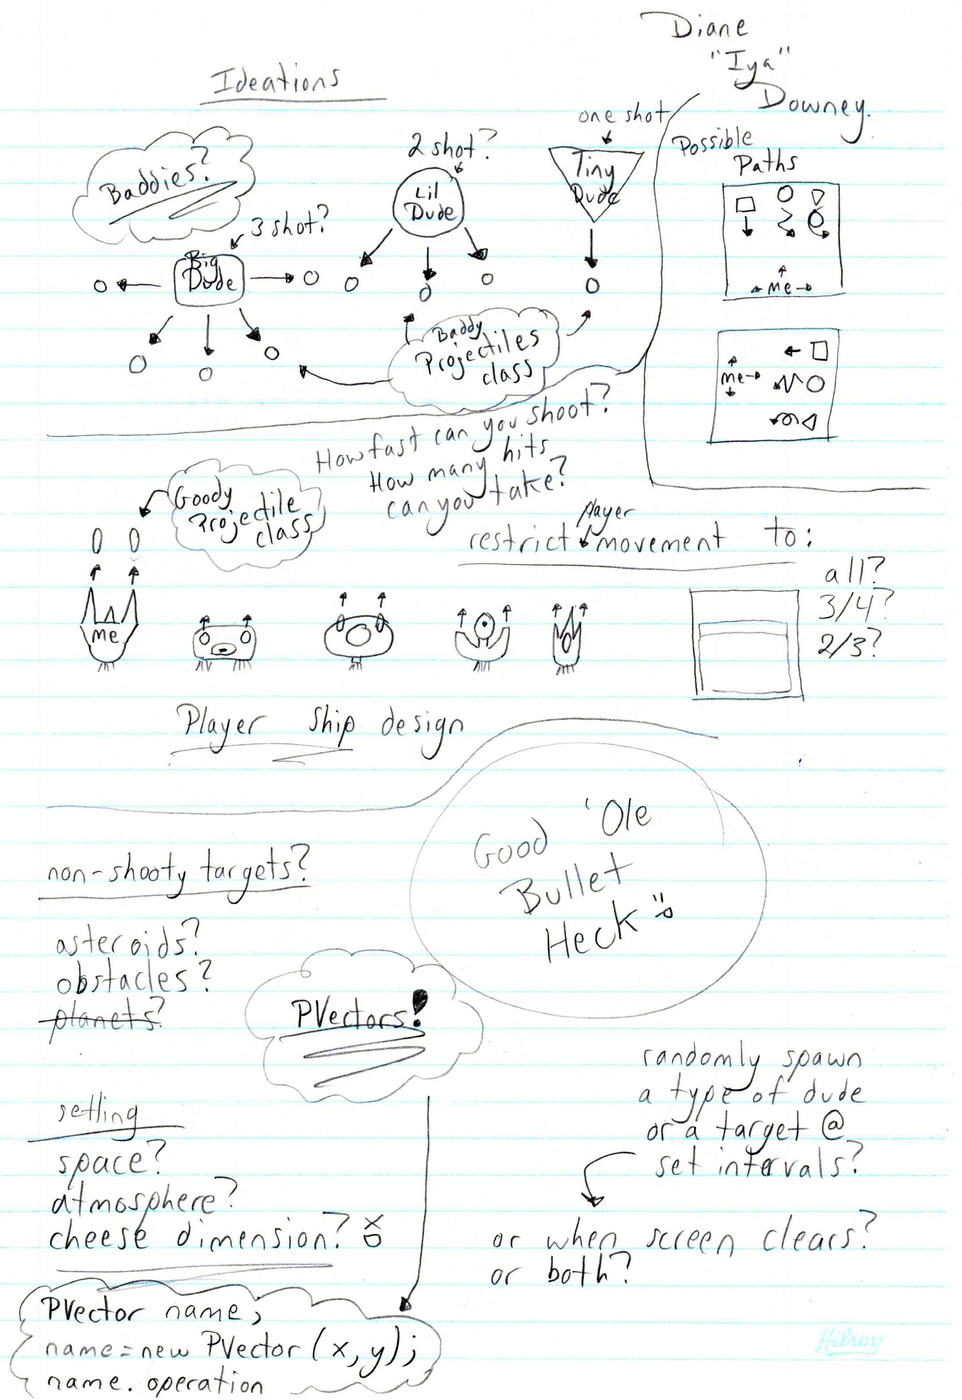 Diane
"Iya"
Downey.
Ideations
Baddies?
3 shot?
Big
Dude
2 shot?
Lil
Dude
one shot
Tiny
Dude
Baddy
Projectiles
class
Possible
Paths
me
me
How fast can you shoot?
How many hits
can you take?
Goody
Projectile
class
me
Player ship design
player
restrict movement to:
all?
3/4?
2/3?
Good 'Ole
Bullet
Heck
non-shooty targets?
asteroids?
obstacles?
planets?
PVectors!
setting
space?
atmosphere?
cheese dimension?
randomly spawn
a type of dude
or a target @
set intervals?
or when screen clears?
or both?
PVector name;
name = new PVector (x, y);
name. operation
Hilroy